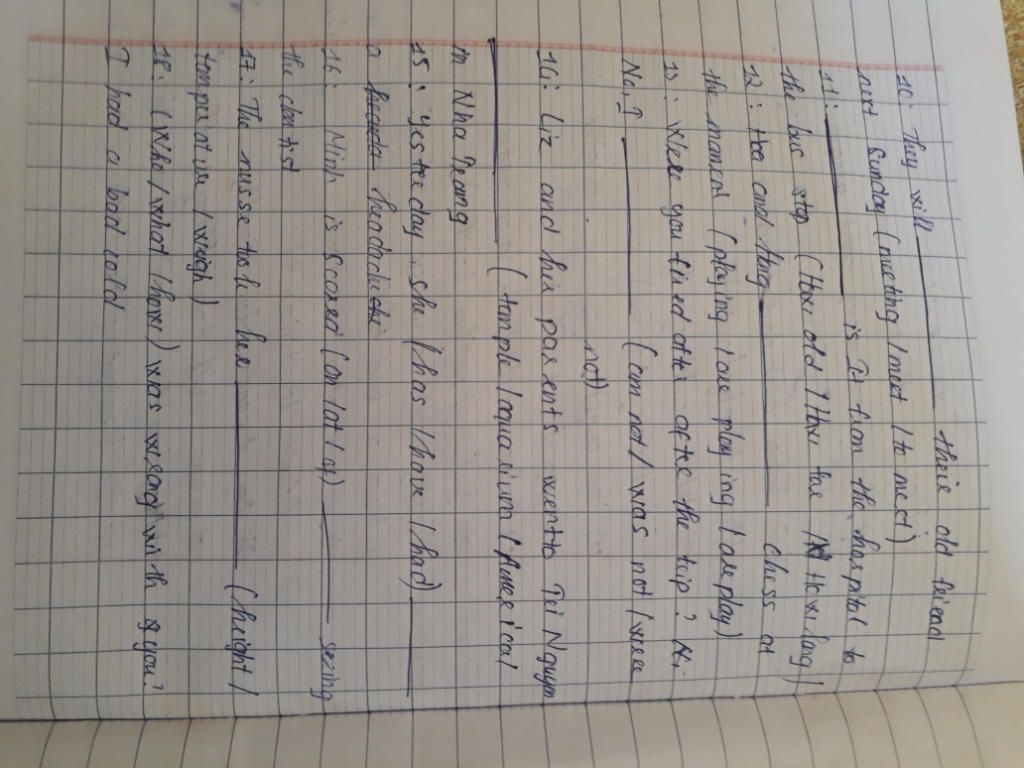 10: They will ______ their old friend
next Sunday (meeting / meet / to meet)
11: ______ is it from the hospital to
the bus stop (How old / How far / How long)
12: Hoa and Hang ______ chess at
the moment (playing / are playing / are play)
13: Were you tired after the trip?
No, I ______ (am not / was not / were
not)
14: Liz and his parents went to Tri Nguyen
______ (temple / aquarium /
in Nha Trang
15: Yesterday, she (has / have / had) ______
a headache
16: Minh is scared (on / at / of) ______ seeing
the dentist
17: The nurse to her ______ (height /
temperature / weigh)
18: (Who / what / how) was wrong with you?
I had a bad cold